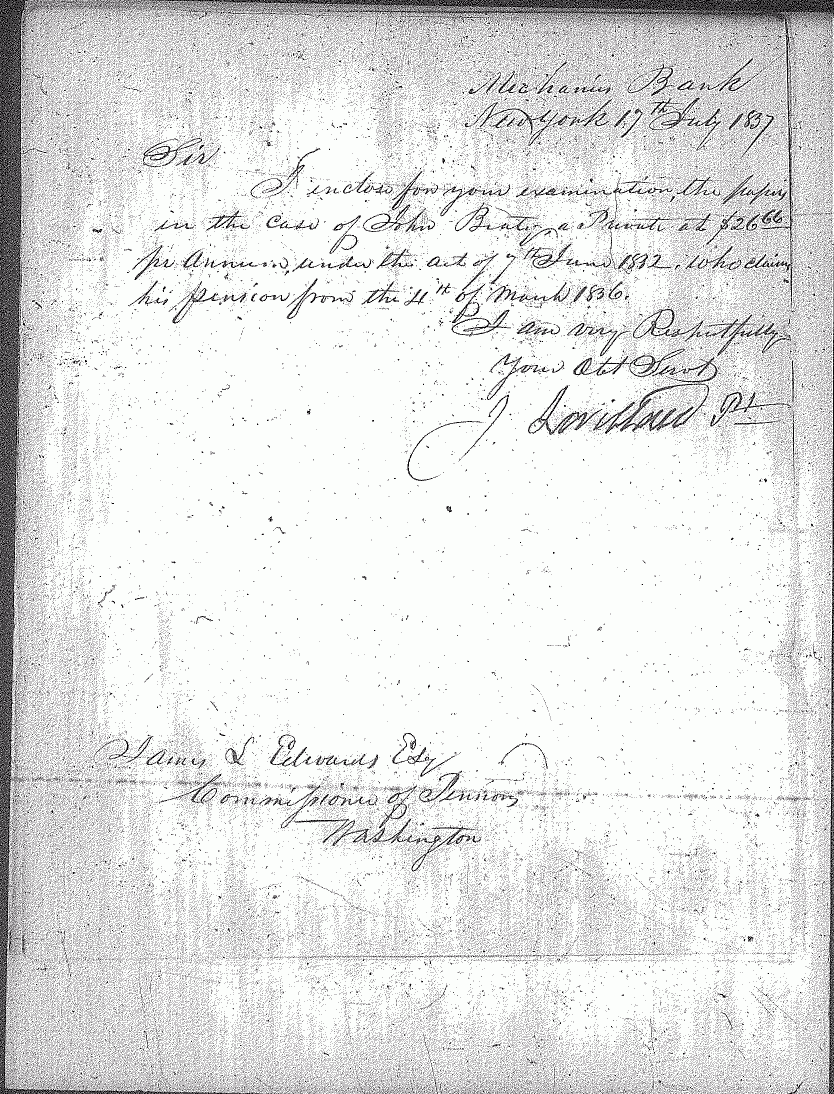 Mechanics Bank
New York 17th July 1837
Sir
I enclose for your examination, the papers
in the case of John Beaty, a Private at $26 66
pr Annum, under the act of 7th June 1832. who claims
his pension from the 4th of March 1836.
I am very Respectfully
Your Obt Servt
J Lorillard Pt
James L Edwards Esq
Commissioner of Pensions
Washington